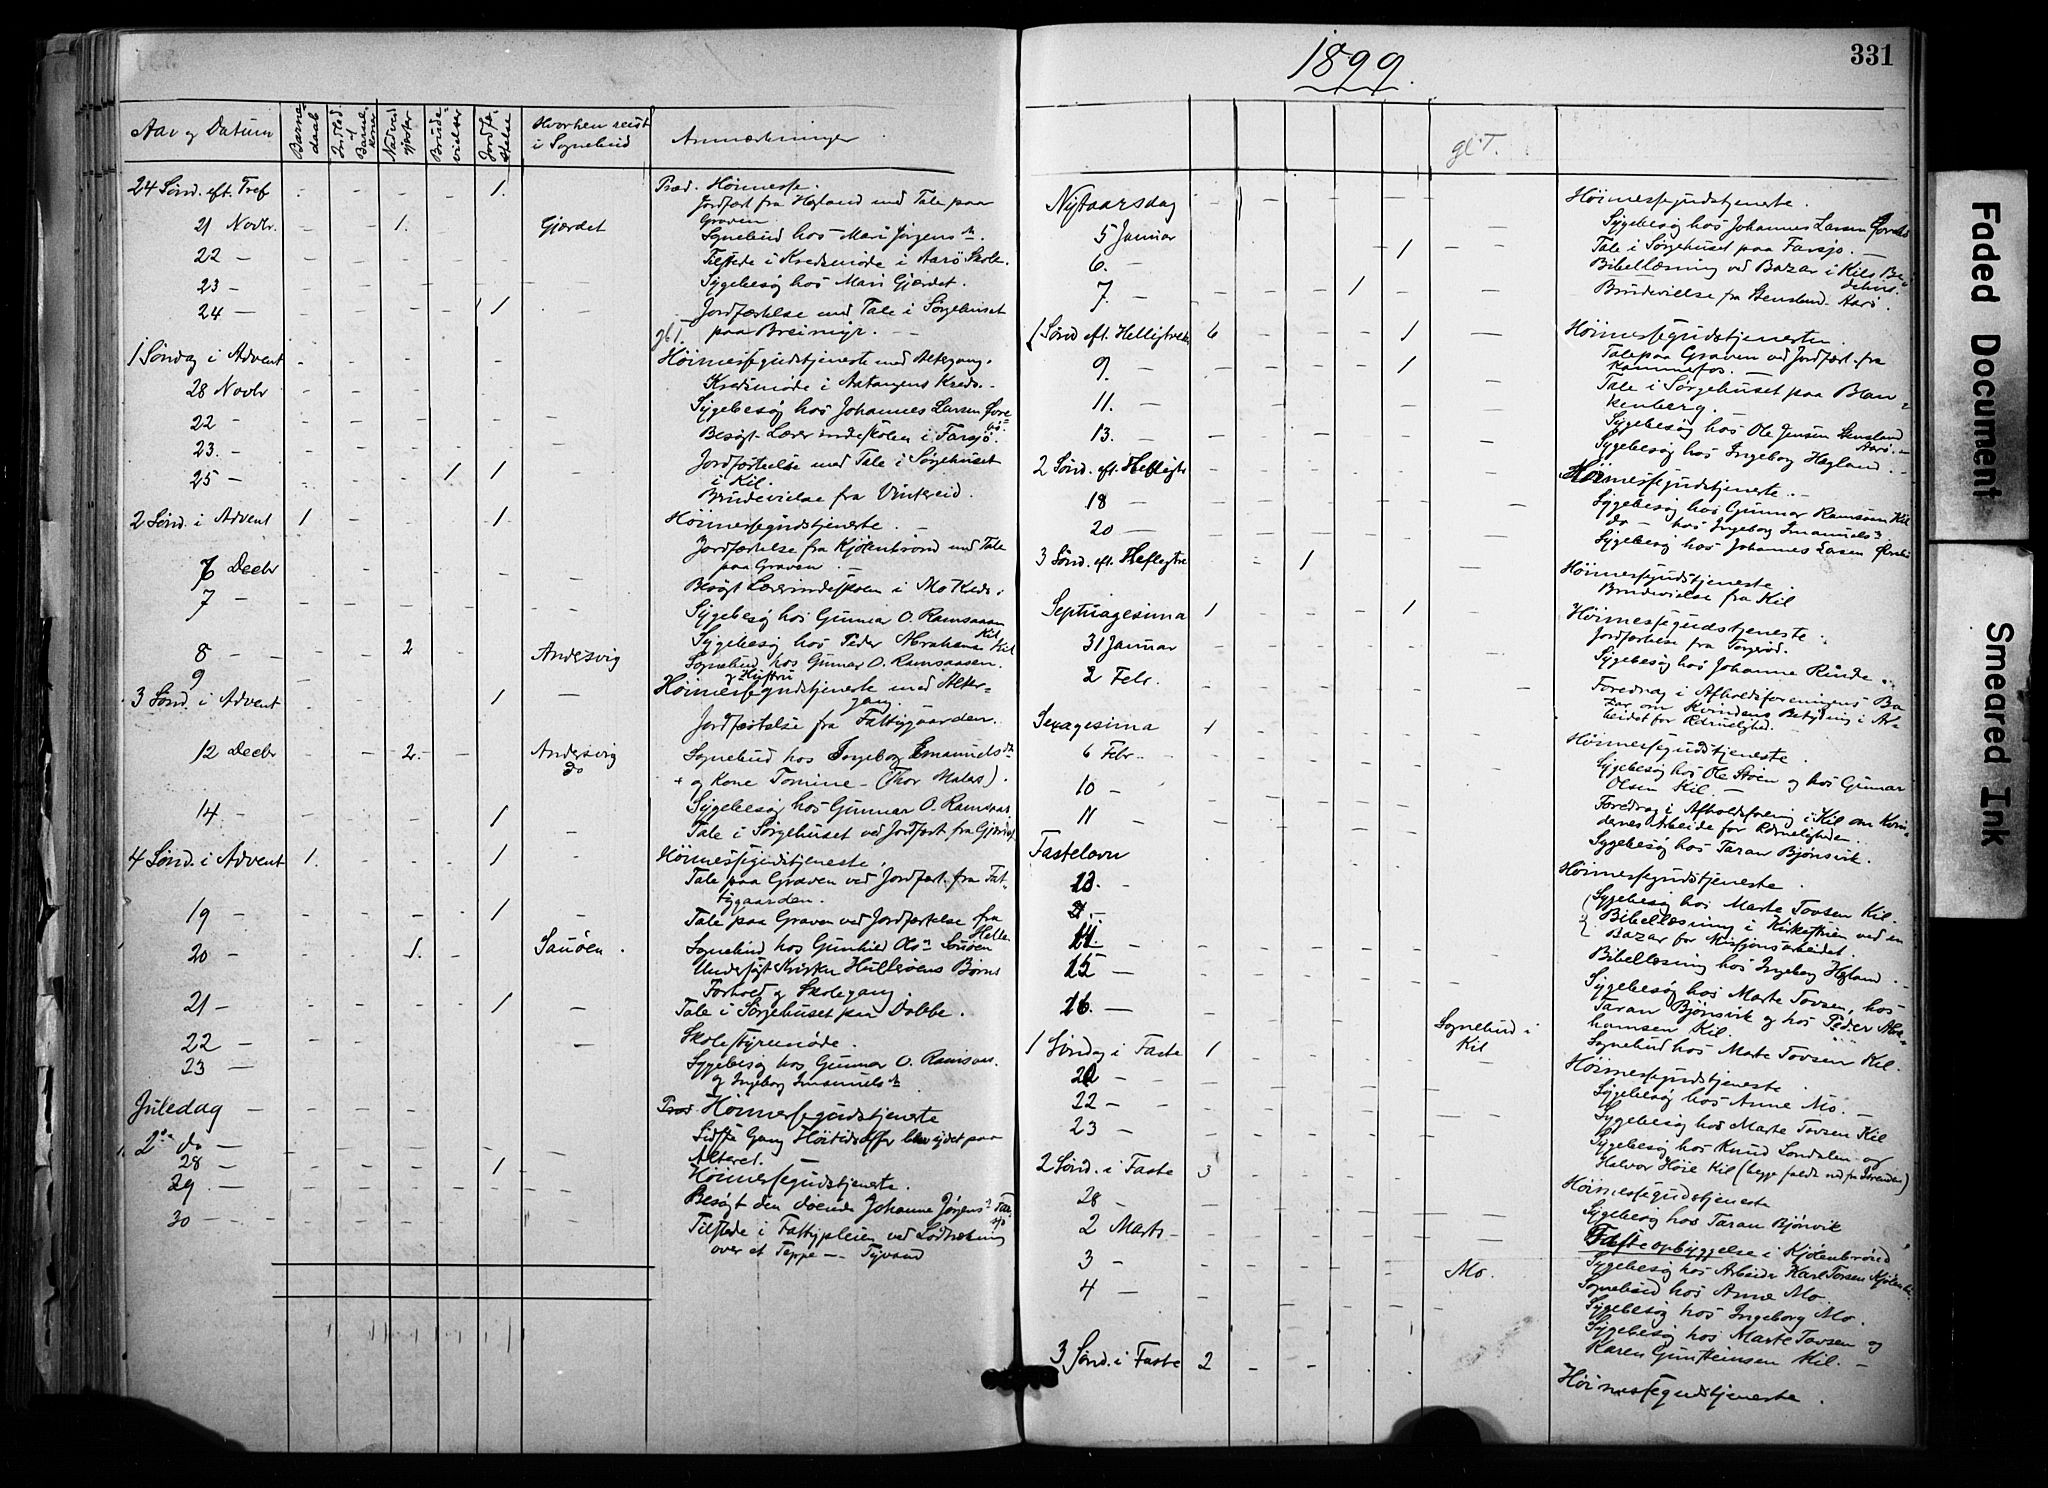 Aar og Datum
Barnedaab
Indled. af Barnekoner
Nadverdgjæster
Brudevielser
Jordfæstelse
Hvorhen reist i Sognebud
Anmærkninger
24 Sønd. eft. Tref - - - - 1. Præd. Høimesse.
Jordfæst fra Hegland med Tale paa
Graven
21 Novbr. - - 1. - - Gjærdet Sognebud hos Mari Jørgensdt.
22 - Tilstede i Kredsmøde i Aarö Skole.
23 - Sygebesøg hos Mari Gjærdet.
24 - 1 - Jordfæstelse med Tale i Sørgehuset
paa Breimyr. -
1 Søndag i Advent Høimessegudstjeneste med Altergang.
28 Novbr Kredsmøde i Aatangens Kreds. -
22 - Sygebesøg hos Johannes Larsen
23. - Besøgt Lærerindeskolen i Farsjø.
25 - 1 1 Jordfæstelse med Tale i Sørgehuset
i Kil.
Brudevielse fra Vinkeeid.
2 Sønd. i Advent 1 - 1 Høimessegudstjeneste. -
Jordfæstelse fra Kjølenbrönd med Tale
paa Graven. -
6 Decbr Besøgt Lærerindeskolen i Mo Kreds.
7 - Sygebesøg hos Gunnar O. Ramsaasen
Kil
Sygebesøg hos Peder Abrahams Kil
8 - - 2 Andersvig Sognebud hos Gunnar O. Ramsaasen.
9 og Hustru
3 Sønd. i Advent 1 - Høimessegudstjeneste med Alter-
gang.
Jordfæstelse fra Fattiggaarden.
12 Decbr 2. Andersvig Sognebud hos Ingeborg Emanuelsdt
do + og Kone Tomine - (Thor Malas).
14 - 1 Sygebesøg hos Gunnar O. Ramsaas.
- Tale i Sørgehuset ved Jordfæst fra Gjærdet
4 Sønd. i Advent 1. 1 Høimessegudstjeneste.
Tale paa Graven ved Jordfæst. fra Fat-
tiggaarden.
19 - 1 - Tale paa Graven ved Jordfæstelse fra
Hellen
20 - 1. - Sauöen. Sognebud hos Gunhild Olsdt Sauöen
Undersøgt Børns
Forhold og Skolegang.
21 - 1 - Tale i Sørgehuset paa Dobbe.
22 - - Skolestyremøde.
23 - Sygebesøg hos Gunnar O. Ramsaas.
og Ingeborg Imanuelsdt
Juledag - Præd. Høimessegudstjeneste
2den do - Sidste Gang Høitidsoffer blev ydet paa
Alteret.
28 - 1 - Høimessegudstjeneste.
29. - Besøgt den døende Johanne Jørgensdt
30 - Tilstede i Fattigpleien ved Lodtrækning
over et Teppe - Tyvand
1899.
331
gl.T.
Nytaarsdag Høimessegudstjeneste.
5 Januar Sygebesøg hos Johannes Larsen
6. - 1 - Tale i Sørgehuset paa Farsjø.
7. - 1 Bibellæsning ved Bazar i Kils Be-
dehus.
Brudevielse fra Stensland. Aarö.
1 Sønd eft. Helligtrek. 6 1 - Høimessegudstjenesten.
9. - 1 Tale paa Graven ved Jordfæst. fra
Kammerfos. -
11. - Tale i Sørgehuset paa Blan-
kenberg.
13. - Sygebesøg hos Ole Jensen Stensland
Aarö. -
Sygebesøg hos Ingeborg Hegland. -
2 Sønd. eft. Helligtr Høimessegudstjeneste. -
18 - Sygebesøg hos Gunnar Ramsaasen Kil
20 - do - hos Ingeborg Imanuelsdt
Sygebesøg hos Johannes Larsen
3 Sønd. eft. Helligtre 1 Høimessegudstjeneste.
Brudevielse fra Kil
Septuagesima 1 1 Høimessegudstjeneste.
31 Januar Jordfæstelse fra Torgröd.
2 Febr. Sygebesøg hos Johanne Rinde.
Foredrag i Afholdsforeningens Ba-
zar om Kvindens Betydning i Ar-
beidet for Ædruelighed.
Sexagesima 1 Høimessegudstjeneste.
6 Febr. - Sygebesøg hos Ole Stöen og hos Gunnar
10 - Olsen Kil. -
11 - Foredrag i Afholdsforening i Kil om Kvin-
dernes Arbeide for Ædrueligheden.
Sygebesøg hos Taran Bjönsvik.
Fastelavn Høimessegudstjeneste.
13. - Sygebesøg hos Marte Tovsen Kil.
Bibellæsning i ved en
14. Bazar for Misjonsarbeidet.
15 - Bibellæsning hos Ingeborg Hegland. -
16. - Sygebesøg hos Marte Tovsen, hos
Sognebud i Kil Taran Bjönsvik og hos Peder Abra-
hamsen Kil.
Sognebud hos Marte Tovsen Kil.
1 Søndag i Faste 1 Høimessegudstjeneste.
20 - Sygebesøg hos Anne Mo. -
22 - - Sygebesøg hos Marte Tovsen Kil
23 - Sygebesøg hos Knud Londalen og
Halvor Höie Kil (begge faldt ned fra )
2 Sønd. i Faste 3 Høimessegudstjeneste
28 - Sygebesøg hos Taran Bjönvik
2 Marts - Fasteopbyggelse i Kjölenbrönd
3 - Mo. Sygebesøg hos Arbeider Karl Torsen
4 - Sognebud hos Anne Mo.
Sygebesøg hos Ingeborg Mo.
Sygebesøg hos Marte Tovsen og
Karen Gunsteinsen Kil. -
3 Sønd. i Faste 2 - - Høimessegudstjeneste.
Faded Document
Smeared Ink